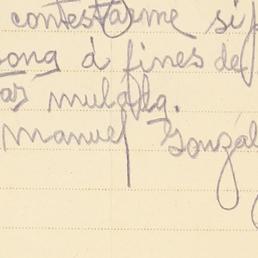 contestarme si
ong á fines de
mulata.
Manuel Gonzál